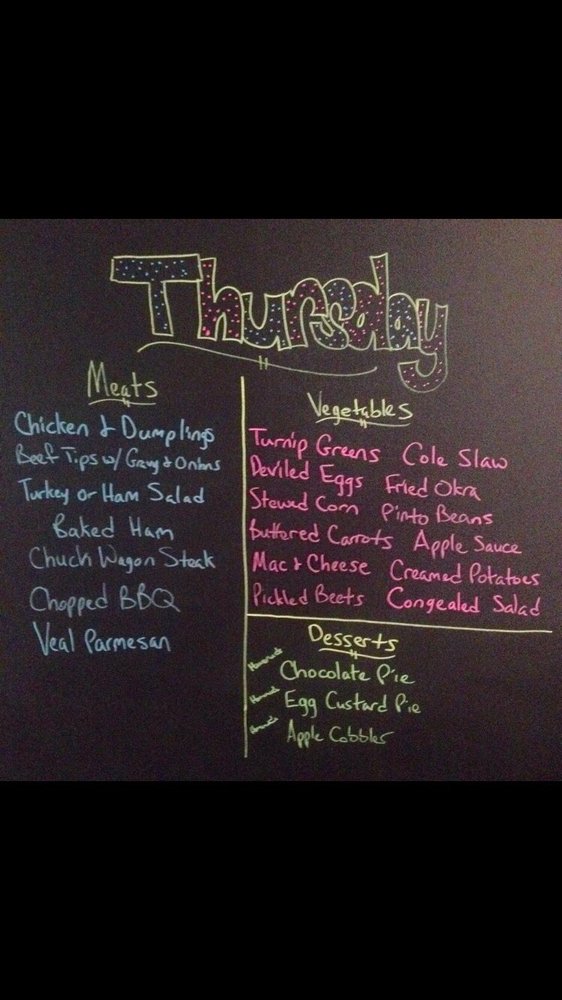 Thursday
Meats
Chicken & Dumplings
Beef Tips w/ Gravy & Onions
Turkey or Ham Salad
Baked Ham
Chuck Wagon Steak
Chopped BBQ
Veal Parmesan
Vegetables
Turnip Greens Cole Slaw
Deviled Eggs Fried Okra
Stewed Corn Pinto Beans
Buttered Carrots Apple Sauce
Mac & Cheese Creamed Potatoes
Pickled Beets Congealed Salad
Desserts
Homemade Chocolate Pie
Homemade Egg Custard Pie
Homemade Apple Cobbler